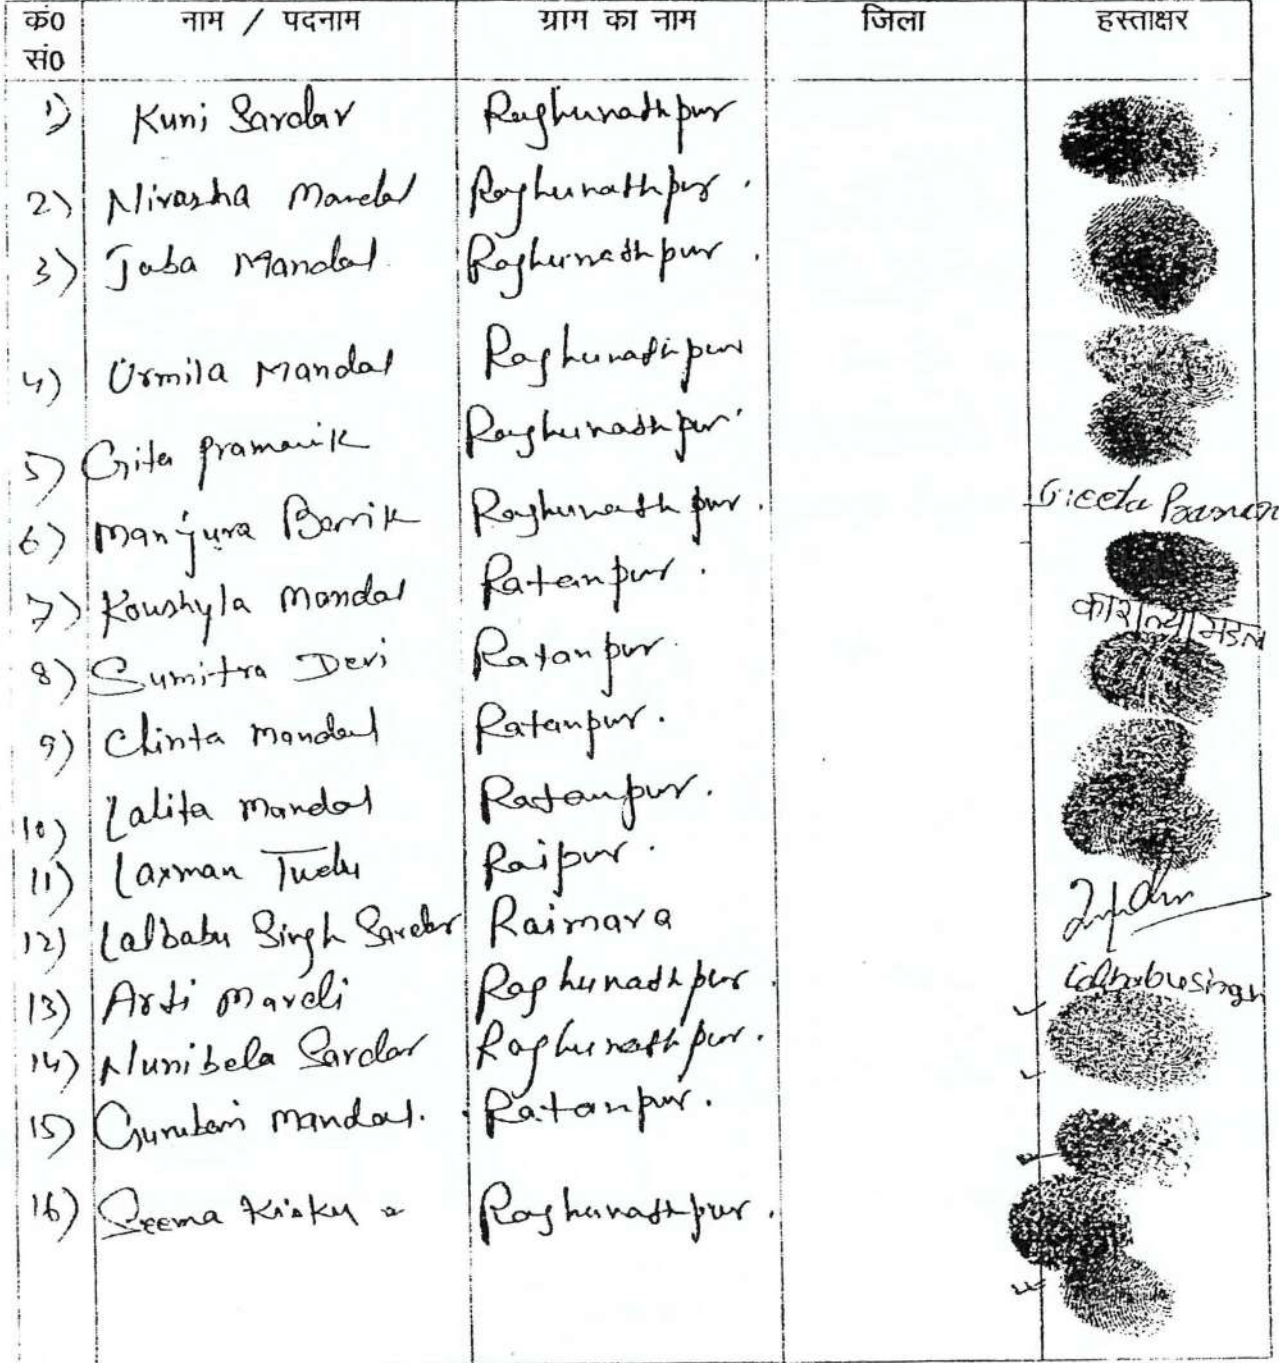 क्र0 सं0 नाम / पदनाम ग्राम का नाम जिला हस्ताक्षर
1) Kuni Sardar Raghunathpur
2) Nirasha Mandal Raghunathpur.
3) Jaba Mandal Raghunathpur.
4) Urmila Mandal Raghunathpur
5) Gita pramanik Raghunathpur
6) Manjura Barrik Raghunathpur. Geeta
7) Koushyla Mandal Ratanpur.
8) Sumitra Devi Ratanpur. मंडल
9) Chinta Mandal Ratanpur.
10) Lalita Mandal Ratanpur.
11) Laxman Tudu Raipur.
12) Lalbabu Singh Sardar Raimara
13) Arti Mardi Raghunathpur. Lalbabusingh
14) Nunibela Sardar Raghunathpur.
15) Gurubari Mandal. Ratanpur.
16) Seema Kisku Raghunathpur.